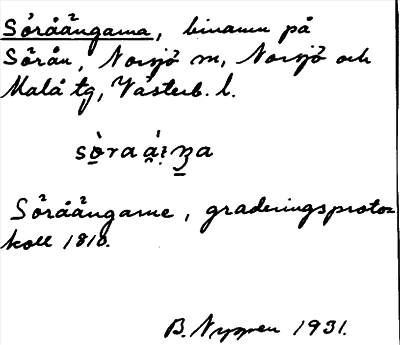 Söråängarna, binamn på
Sörån, Norsjö sn, Norsjö och
Malå tg, Västerb. l.
Söråängarne, graderingsproto=
koll 1810.
B. Nygren 1931.